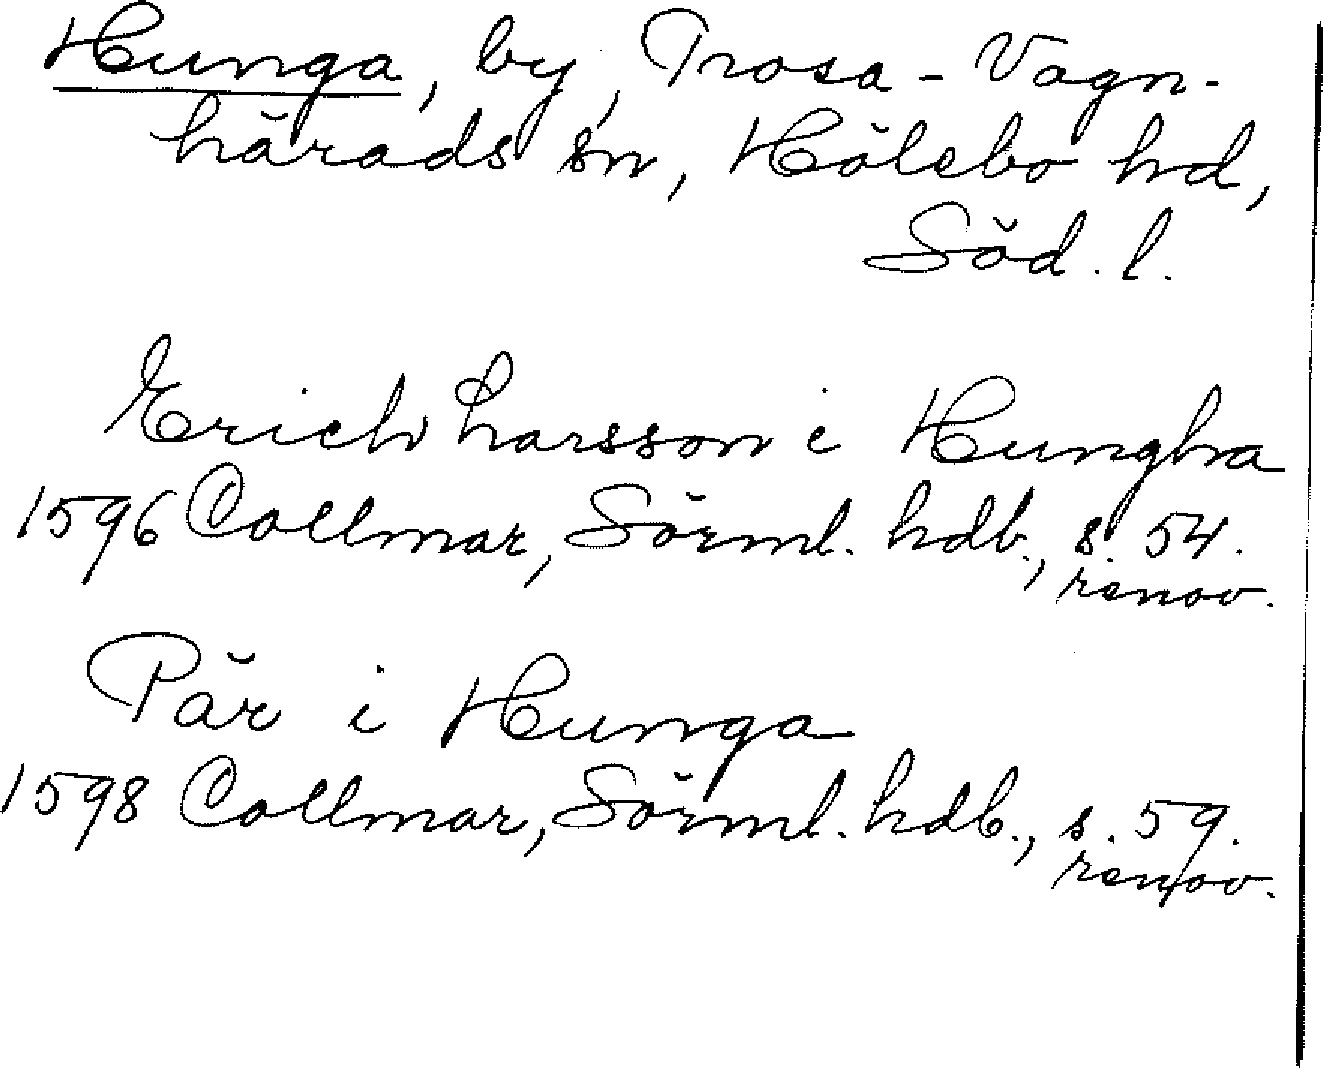 Hunga, by, Trosa-Vagn-
härads sn, Hölebo hd,
Söd. l.
Erich Larsson i Hungha
1596 Collmar, Sörml. hdb., s. 54.
renov.
Pär i Hunga
1598 Collmar, Sörml. hdb., s. 59.
renov.